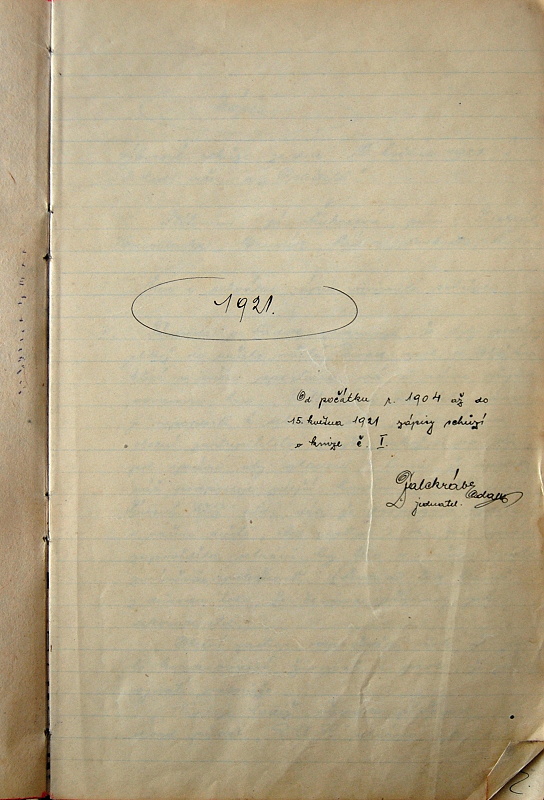 1921.
Od počátku r. 1904 až do
15. května 1921 zápisy schůzí
v knize č. I.
jednatel.
2.